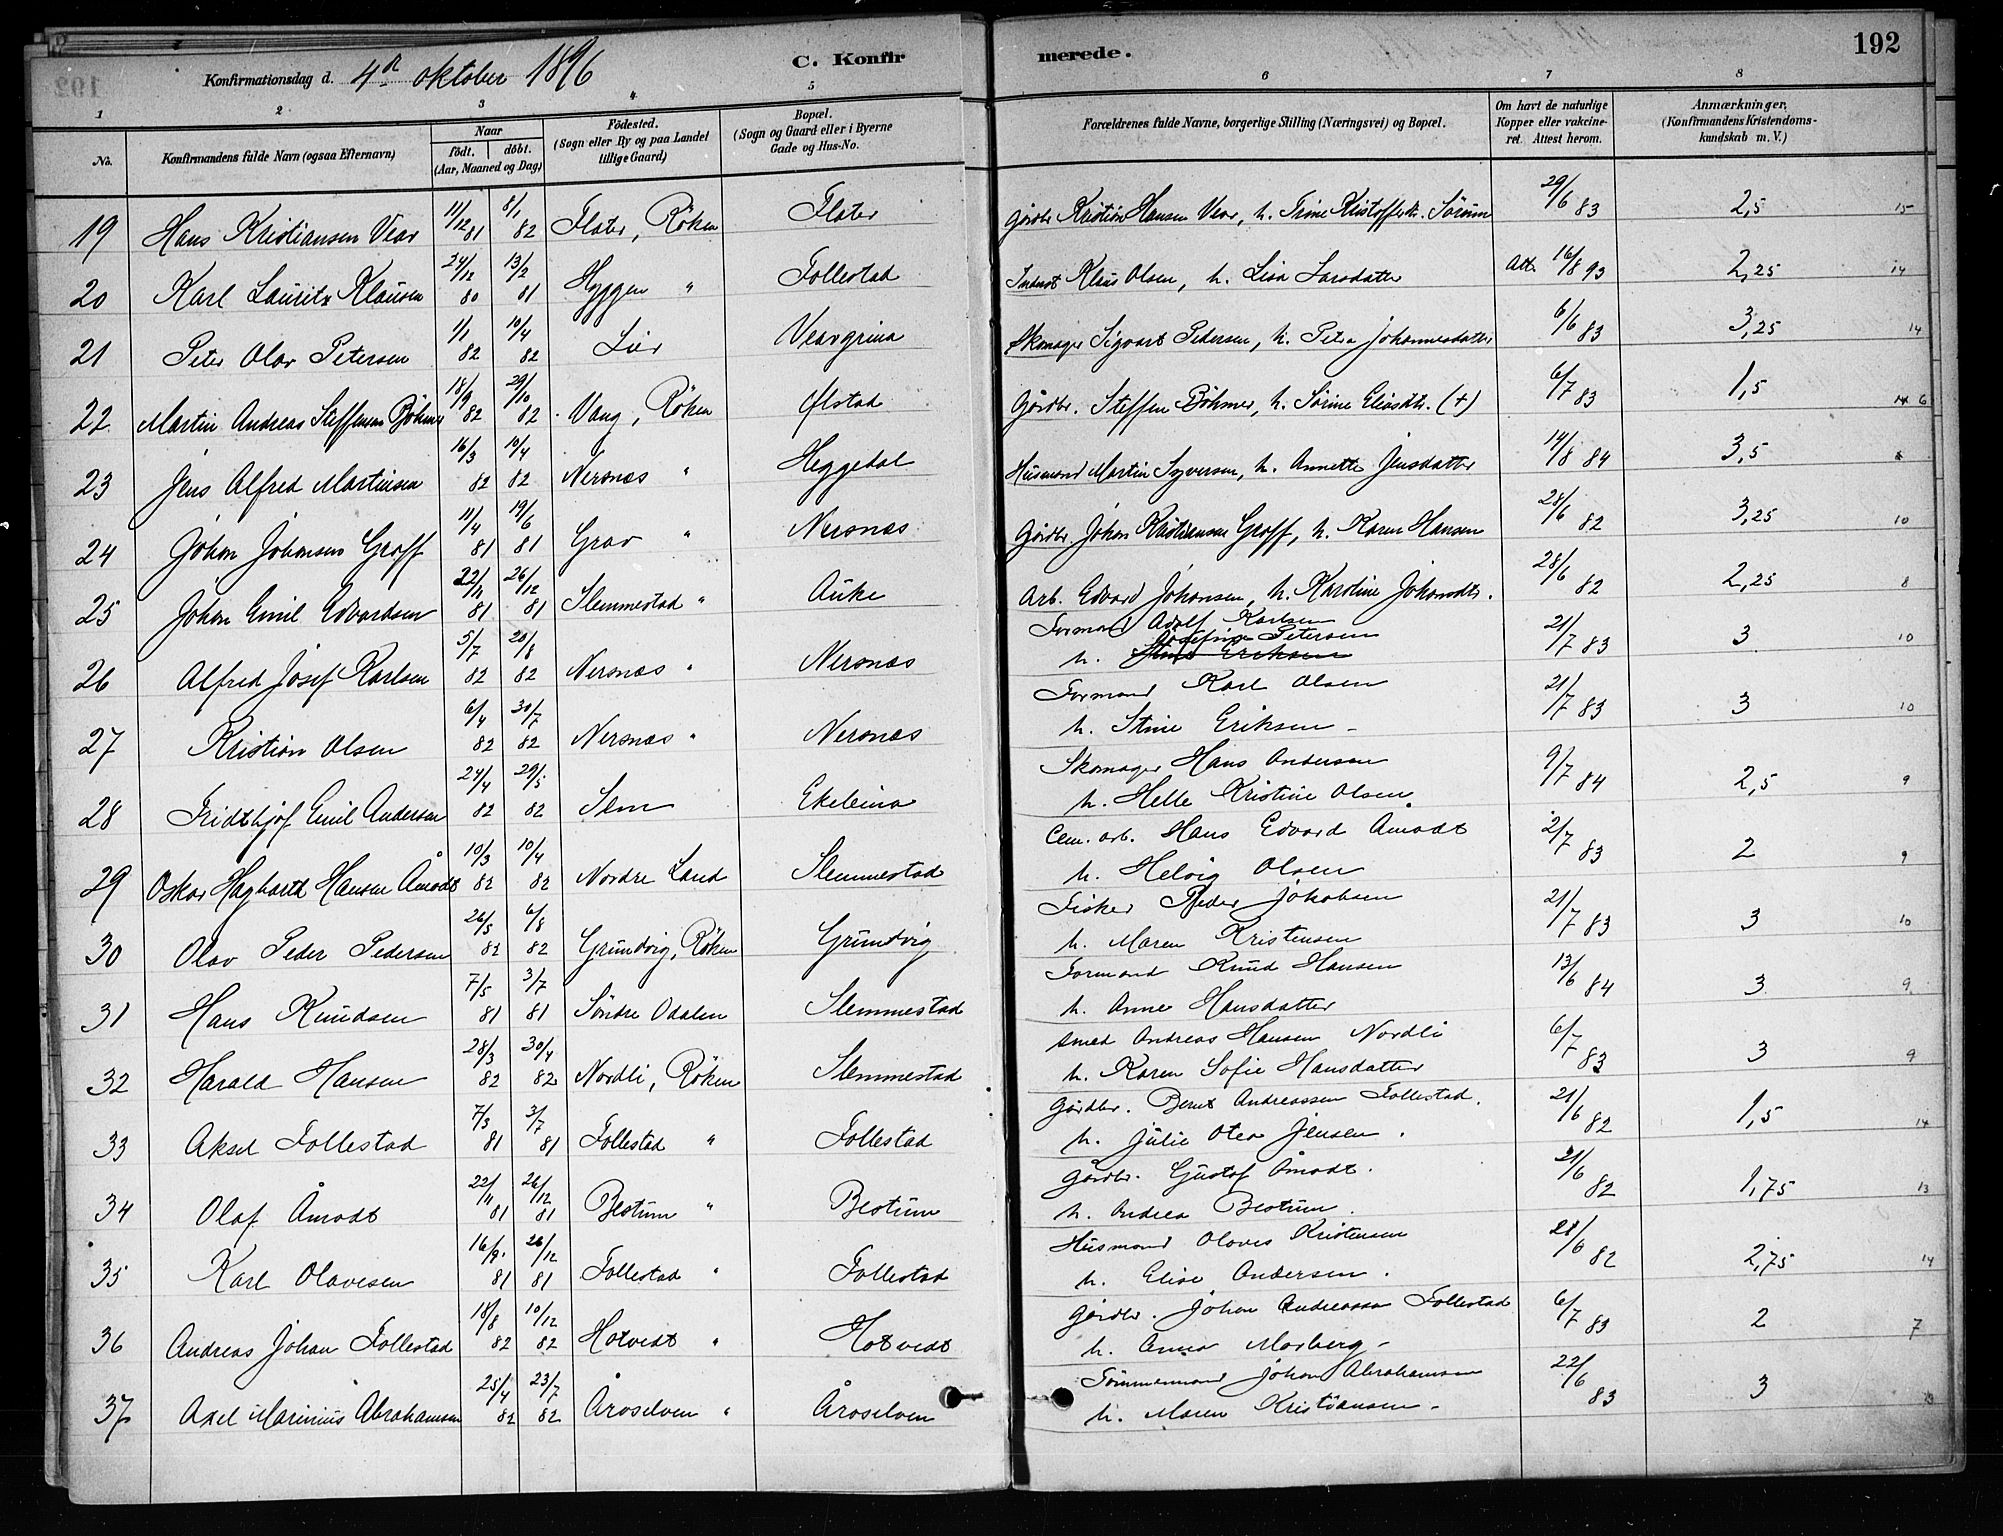 Konfirmationsdag d. 4de oktober 1896
C. Konfirmerede.
192
1 2 3 4 5 6 7 8
No. Konfirmandens fulde Navn (ogsaa Efternavn) Naar født. døbt. (Aar, Maaned og Dag) Födested. (Sogn eller By og paa Landet tillige Gaard) Bopæl. (Sogn og Gaard eller i Byerne Gade og Hus-No. Forældrenes fulde Navne, borgerlige Stilling (Næringsvei) og Bopæl. Om havt de naturlige Kopper eller vakcineret. Attest herom. Anmærkninger, (Konfirmandens Kristendomskundskab m. V.)
19 Hans Kristiansen Vear 11/12 81 8/1 82 Flater, Röken Flater Gårdbr Kristian Hansen Vear, h. Trine Kristoffersd. Sörum 29/6 83 2,5 15
20 Karl Lauritz Klausen 24/12 80 13/2 81 Hyggen " Follestad Inderst Klaus Olsen, h. Lisa Larsdatter Att. 16/8 93 2,25 14
21 Peter Olav Petersen 1/1 82 10/4 82 Lier Veavgrina Skomager Sigvart Pedersen, h. Petra Johannesdatter 6/6 83 3,25 14
22 Martin Andreas Steffensen Böhmer 18/9 82 29/10 82 Vang, Röken Ølstad Gårdbr. Steffen Böhmer, h. Sørine Eliasdtr. (+) 6/7 83 1,5 6
23 Jens Alfred Martinsen 16/3 82 10/4 82 Nersnæs " Heggedal Husmand Martin Syversen, h. Annette Jensdatter 14/8 84 3,5
24 Johan Johansen Graff 11/4 81 19/6 81 Grav " Nersnæs Gårdbr. Johan Kristiansen Graff, h. Karen Hansen 28/6 82 3,25 10
25 Johan Emil Edvardsen 22/11 81 26/12 81 Slemmestad " Auke Arb. Edvard Johansen, h. Karoline Johansdtr. 28/6 82 2,25 8
26 Alfred Josef Karlsen 5/7 82 20/8 82 Nersnæs " Nersnæs Formand Adolf Karlsen h. Stine Eriksen Josefine Petersen 21/7 83 3 10
27 Kristian Olsen 6/4 82 30/7 82 Nersnæs " Nersnæs Formand Karl Olsen h. Stine Eriksen 21/7 83 3 10
28 Fridthjof Emil Andersen 24/4 82 29/5 82 Sem Ekeleina Skomager Hans Andersen h. Helle Kristine Olsen 9/7 84 2,5 9
29 Oskar Hagbarth Hansen Åmodt 10/3 82 10/4 82 Nordre Land Slemmestad Cem. arb. Hans Edvard Åmodt h. Helvig Olsen 2/7 83 2 9
30 Olav Peder Pedersen 26/5 82 6/8 82 Grundvig, Röken Grundvig Fisker Peder Jakobsen h. Maren Kristensen 21/7 83 3 10
31 Hans Knudsen 7/5 81 3/7 81 Söndre Odalen Slemmestad Formand Knud Hansen h. Anne Hansdatter 13/6 84 3 9
32 Harald Hansen 28/3 82 30/4 82 Nordli, Röken Slemmestad Smed Andreas Hansen Nordli h. Karen Sofie Hansdatter 6/7 83 3 9
33 Aksel Follestad 7/3 81 3/7 81 Follestad " Follestad Gårdbr. Bernt Andreassen Follestad. h. Julie Otea Jensen. 21/6 82 1,5 14
34 Olaf Åmodt 22/11 81 26/12 81 Bestum " Bestum Gårdbr. Gustaf Åmodt. h. Andrea Bestum. 21/6 82 1,75 13
35 Karl Olavesen 16/9 81 26/12 81 Follestad " Follestad Husmand Olaves Kristensen h. Elise Andersen. 28/6 82 2,75 14
36 Andreas Johan Follestad 18/8 82 10/12 82 Hotvedt " Hotvedt Gårdbr. Johan Andreassen Follestad h. Anna Morberg 6/7 83 2 7
37 Axel Marinius Abrahamsen 25/4 82 23/7 82 Åroselven " Åroselven Tömmermand Johan Abrahamsen h. Maren Kristiansen 22/6 83 3